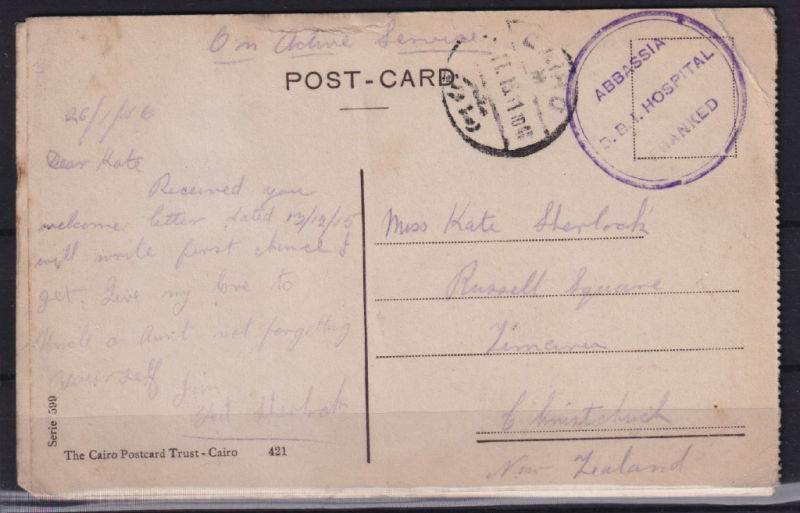 On Active Service
POST-CARD
CAIRO
ABBASSIA
D.B.I. HOSPITAL
FRANKED
26/1/16
Dear Kate
Received you
welcome letter dated 13/12/15
will write first chance I
get. Give my love to
Uncle & Aunt not forgetting
yourself
Jim
Sherlock
Miss Kate Sherlock
Russell Square
Timaru
Christchuch
New Zealand
Serie 599
The Cairo Postcard Trust - Cairo 421